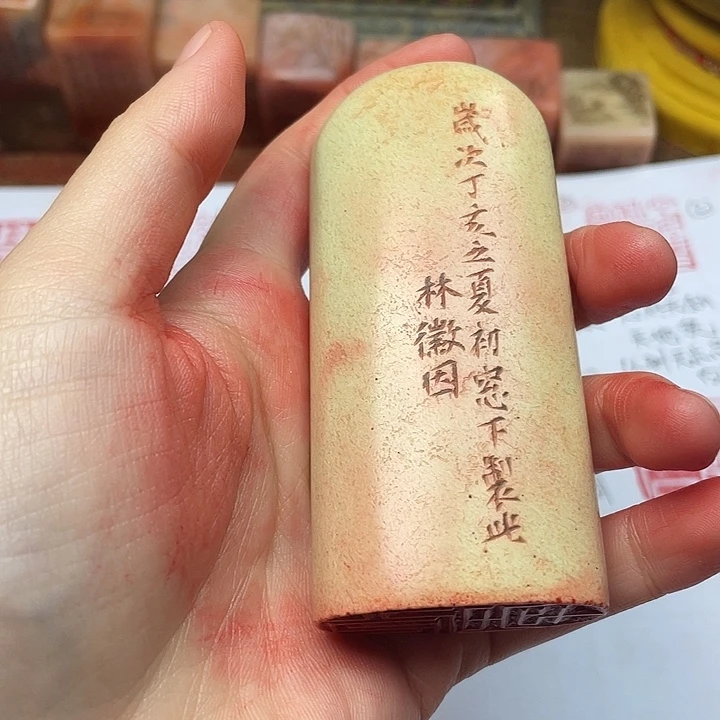 歲次丁亥之夏初窓下製此
林徽因